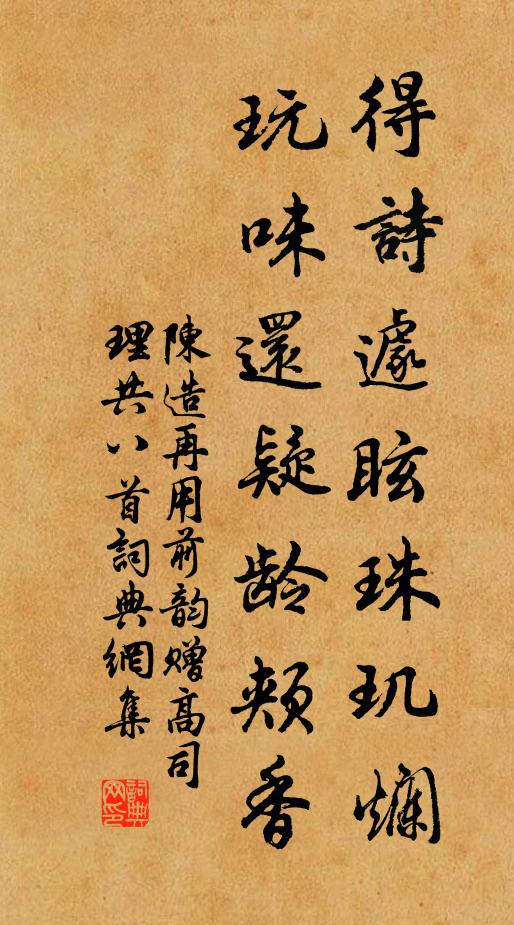 得詩遽眩珠玑爛
玩味還疑龄頰香
陳造再用前韵赠高司
理共八首詞典網集
詞典
网印